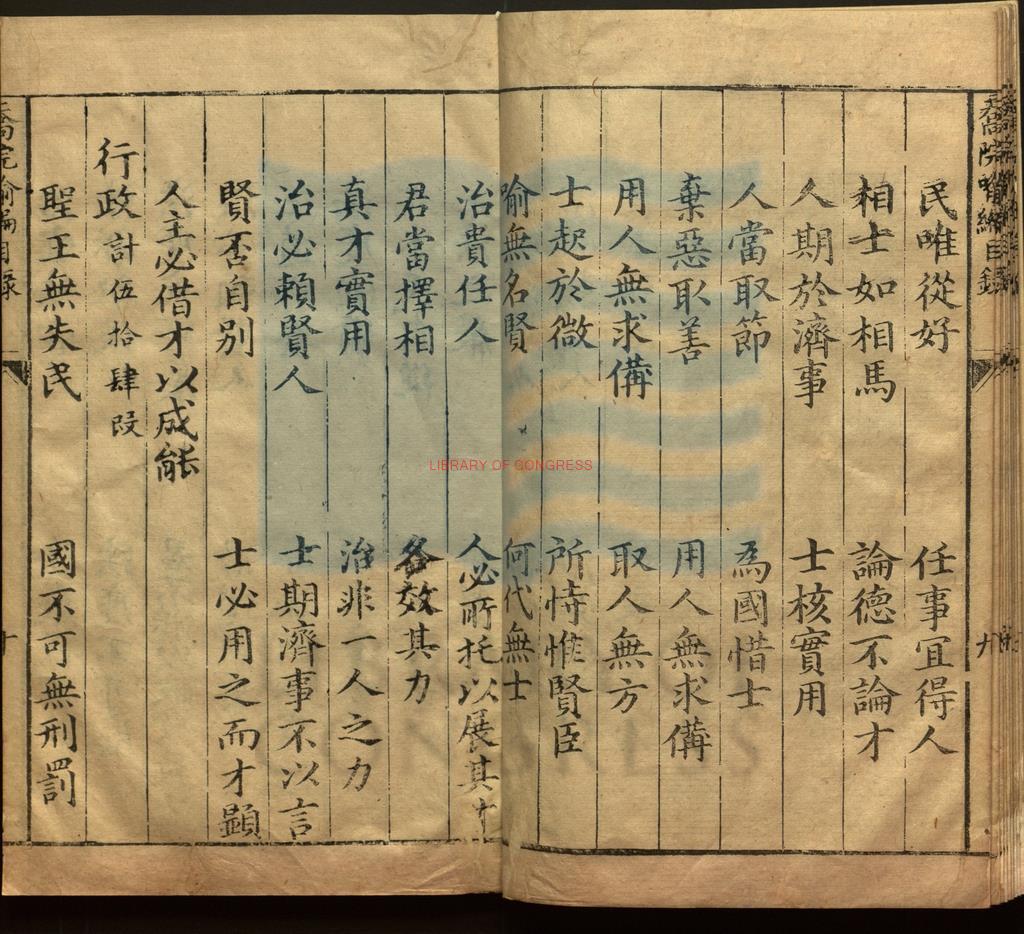 民唯從好 任事宜得人
相士如相馬 論德不論才
人期於濟事 士核實用
人當取節 為國惜士
棄惡取善 用人無求備
用人無求備 取人無方
士起於微 所恃惟賢臣
無名賢 何代無士
治貴任人 人必所托以展其才
君當擇相 各效其力
真才實用 治非一人之力
治必賴賢人 士期濟事不以言
賢否自別 士必用之而才顯
人主必借才以成能
行政計伍拾肆段
聖王無失民 國不可無刑罰
LIBRARY OF CONGRESS